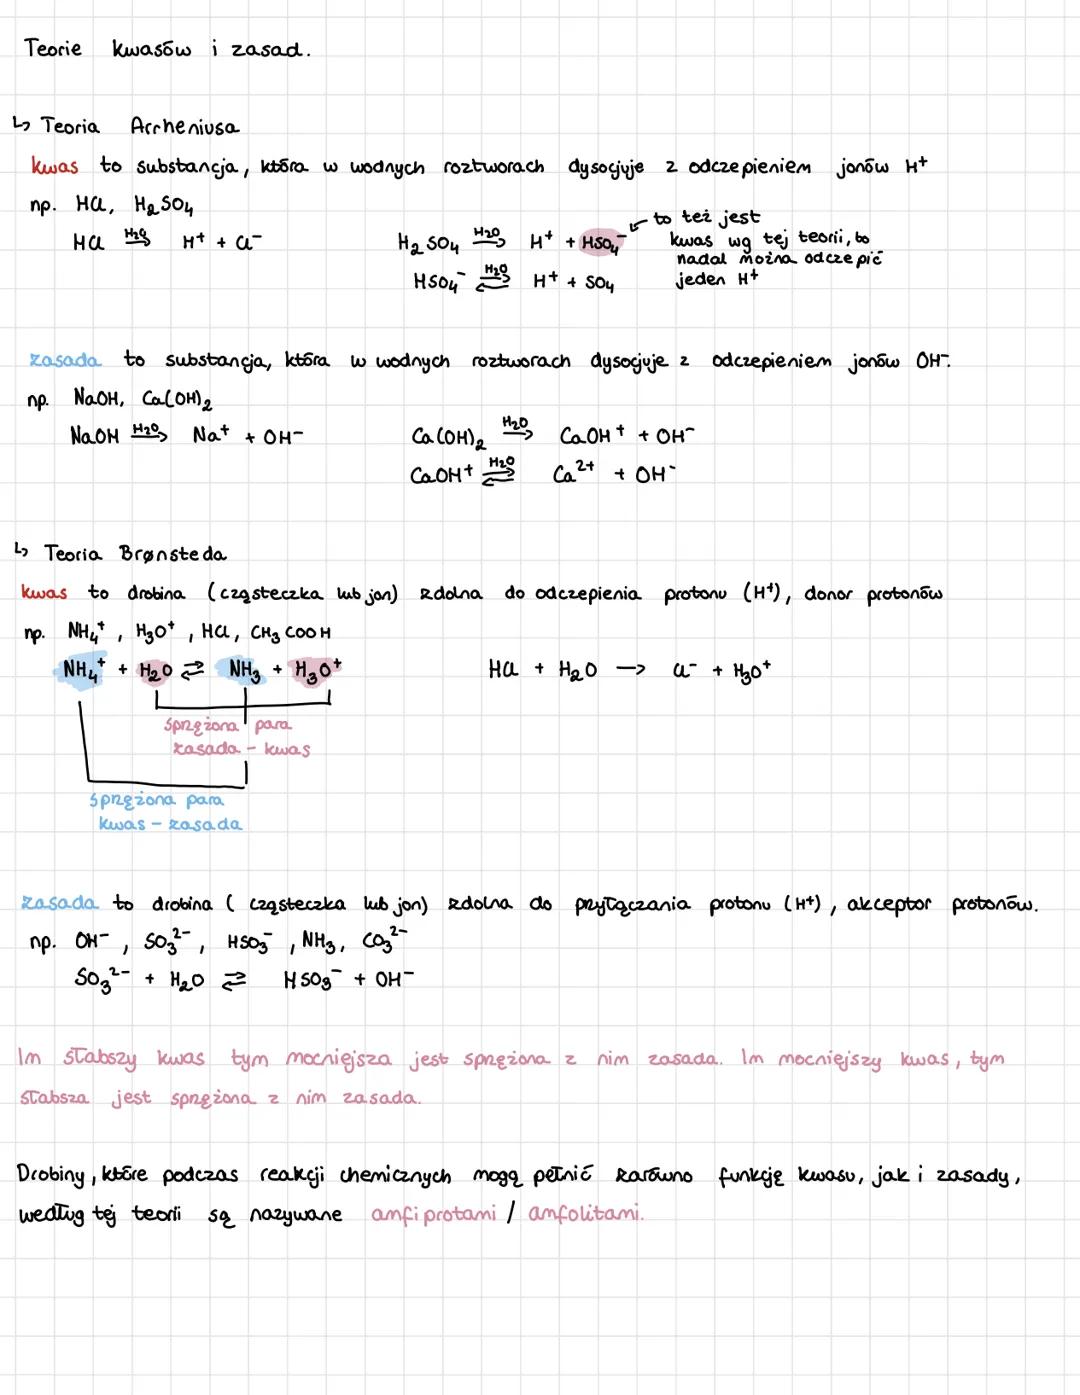 Teorie kwasów i zasad.
↳ Teoria Arrheniusa
kwas to substancja, która w wodnych roztworach dysocjuje z odczepieniem jonów H⁺
np. HCl, H₂SO₄
HCl →(H₂O) H⁺ + Cl⁻
H₂SO₄ →(H₂O) H⁺ + HSO₄⁻
HSO₄⁻ ⇌(H₂O) H⁺ + SO₄
to też jest
kwas wg tej teorii, bo
nadal można odczepić
jeden H⁺
zasada to substancja, która w wodnych roztworach dysocjuje z odczepieniem jonów OH⁻.
np. NaOH, Ca(OH)₂
NaOH →(H₂O) Na⁺ + OH⁻
Ca(OH)₂ →(H₂O) CaOH⁺ + OH⁻
CaOH⁺ ⇌(H₂O) Ca²⁺ + OH⁻
↳ Teoria Brønsteda
kwas to drobina (cząsteczka lub jon) zdolna do odczepienia protonu (H⁺), donor protonów
np. NH₄⁺, H₃O⁺, HCl, CH₃COOH
NH₄⁺ + H₂O ⇌ NH₃ + H₃O⁺
HCl + H₂O → Cl⁻ + H₃O⁺
sprzężona para
zasada - kwas
sprzężona para
kwas - zasada
zasada to drobina (cząsteczka lub jon) zdolna do przyłączania protonu (H⁺), akceptor protonów.
np. OH⁻, SO₃²⁻, HSO₃⁻, NH₃, CO₃²⁻
SO₃²⁻ + H₂O ⇌ HSO₃⁻ + OH⁻
Im słabszy kwas tym mocniejsza jest sprzężona z nim zasada. Im mocniejszy kwas, tym
słabsza jest sprzężona z nim zasada.
Drobiny, które podczas reakcji chemicznych mogą pełnić zarówno funkcję kwasu, jak i zasady,
według tej teorii są nazywane amfiprotami / amfolitami.